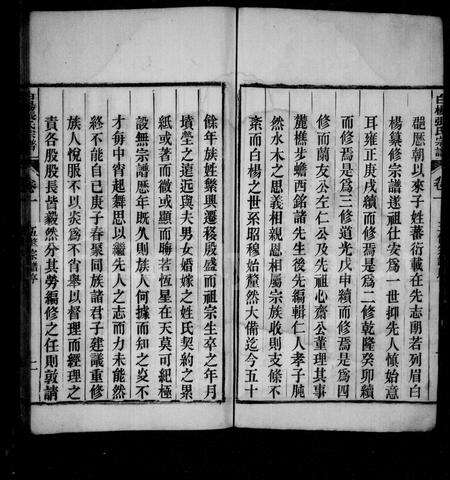 白楊張氏宗譜
卷一
歷朝以來子姓蕃衍載在先志朗若列眉白
楊纂修宗譜遂祖仕安為一世抑先人慎始意
耳雍正庚戌續而修焉是為二修乾隆癸卯續
而修焉是為三修道光戊申續而修焉是為四
修而蘭友公左仁公及先祖心齋公董理其事
麓樵步蟾西銘諸先生後先編輯仁人孝子肫
然水木之思義相親恩相屬宗族收則支條不
紊而白楊之世系昭穆始釐然大備迄今五十
餘年族姓繁興遷移殷盛而祖宗生卒之年月
墳塋之遠近與夫男女婚嫁之姓氏契約之累
紙或著而微或顯而晦若恆星在天莫可紀極
設無宗譜歷年既久則族人何據而知之炎不
才每中宵起舞思以繼先人之志而力未能然
終不能自已庚子春聚同族諸君子建議重修
族人悅服不以炎為不肖舉以督理而經理之
責各股股長皆毅然分其勞編修之任則敦請
卷一
五修宗譜序